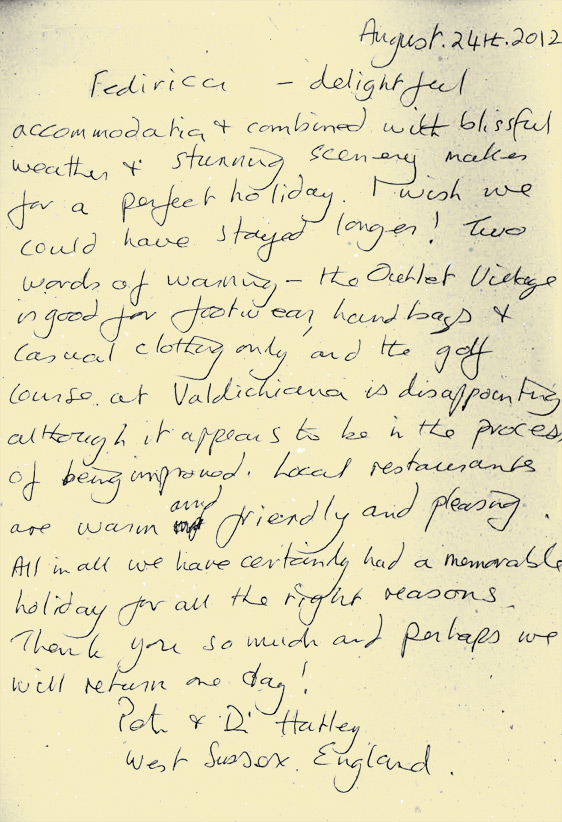 August.24th.2012
Fedirica - delightful
accommodation & combined with blissful
weather & stunning scenery makes
for a perfect holiday. I wish we
could have stayed longer! Two
words of warning - the Outlet Village
is good for footwear, handbags &
casual clothing only and the golf
course at Valdichiana is disappointing
although it appears to be in the process
of being improved. Local restaurants
are warm and friendly and pleasing.
All in all we have certainly had a memorable
holiday for all the right reasons
Thank you so much and perhaps we
will return one day!
& Di Hatley
West Sussex. England.